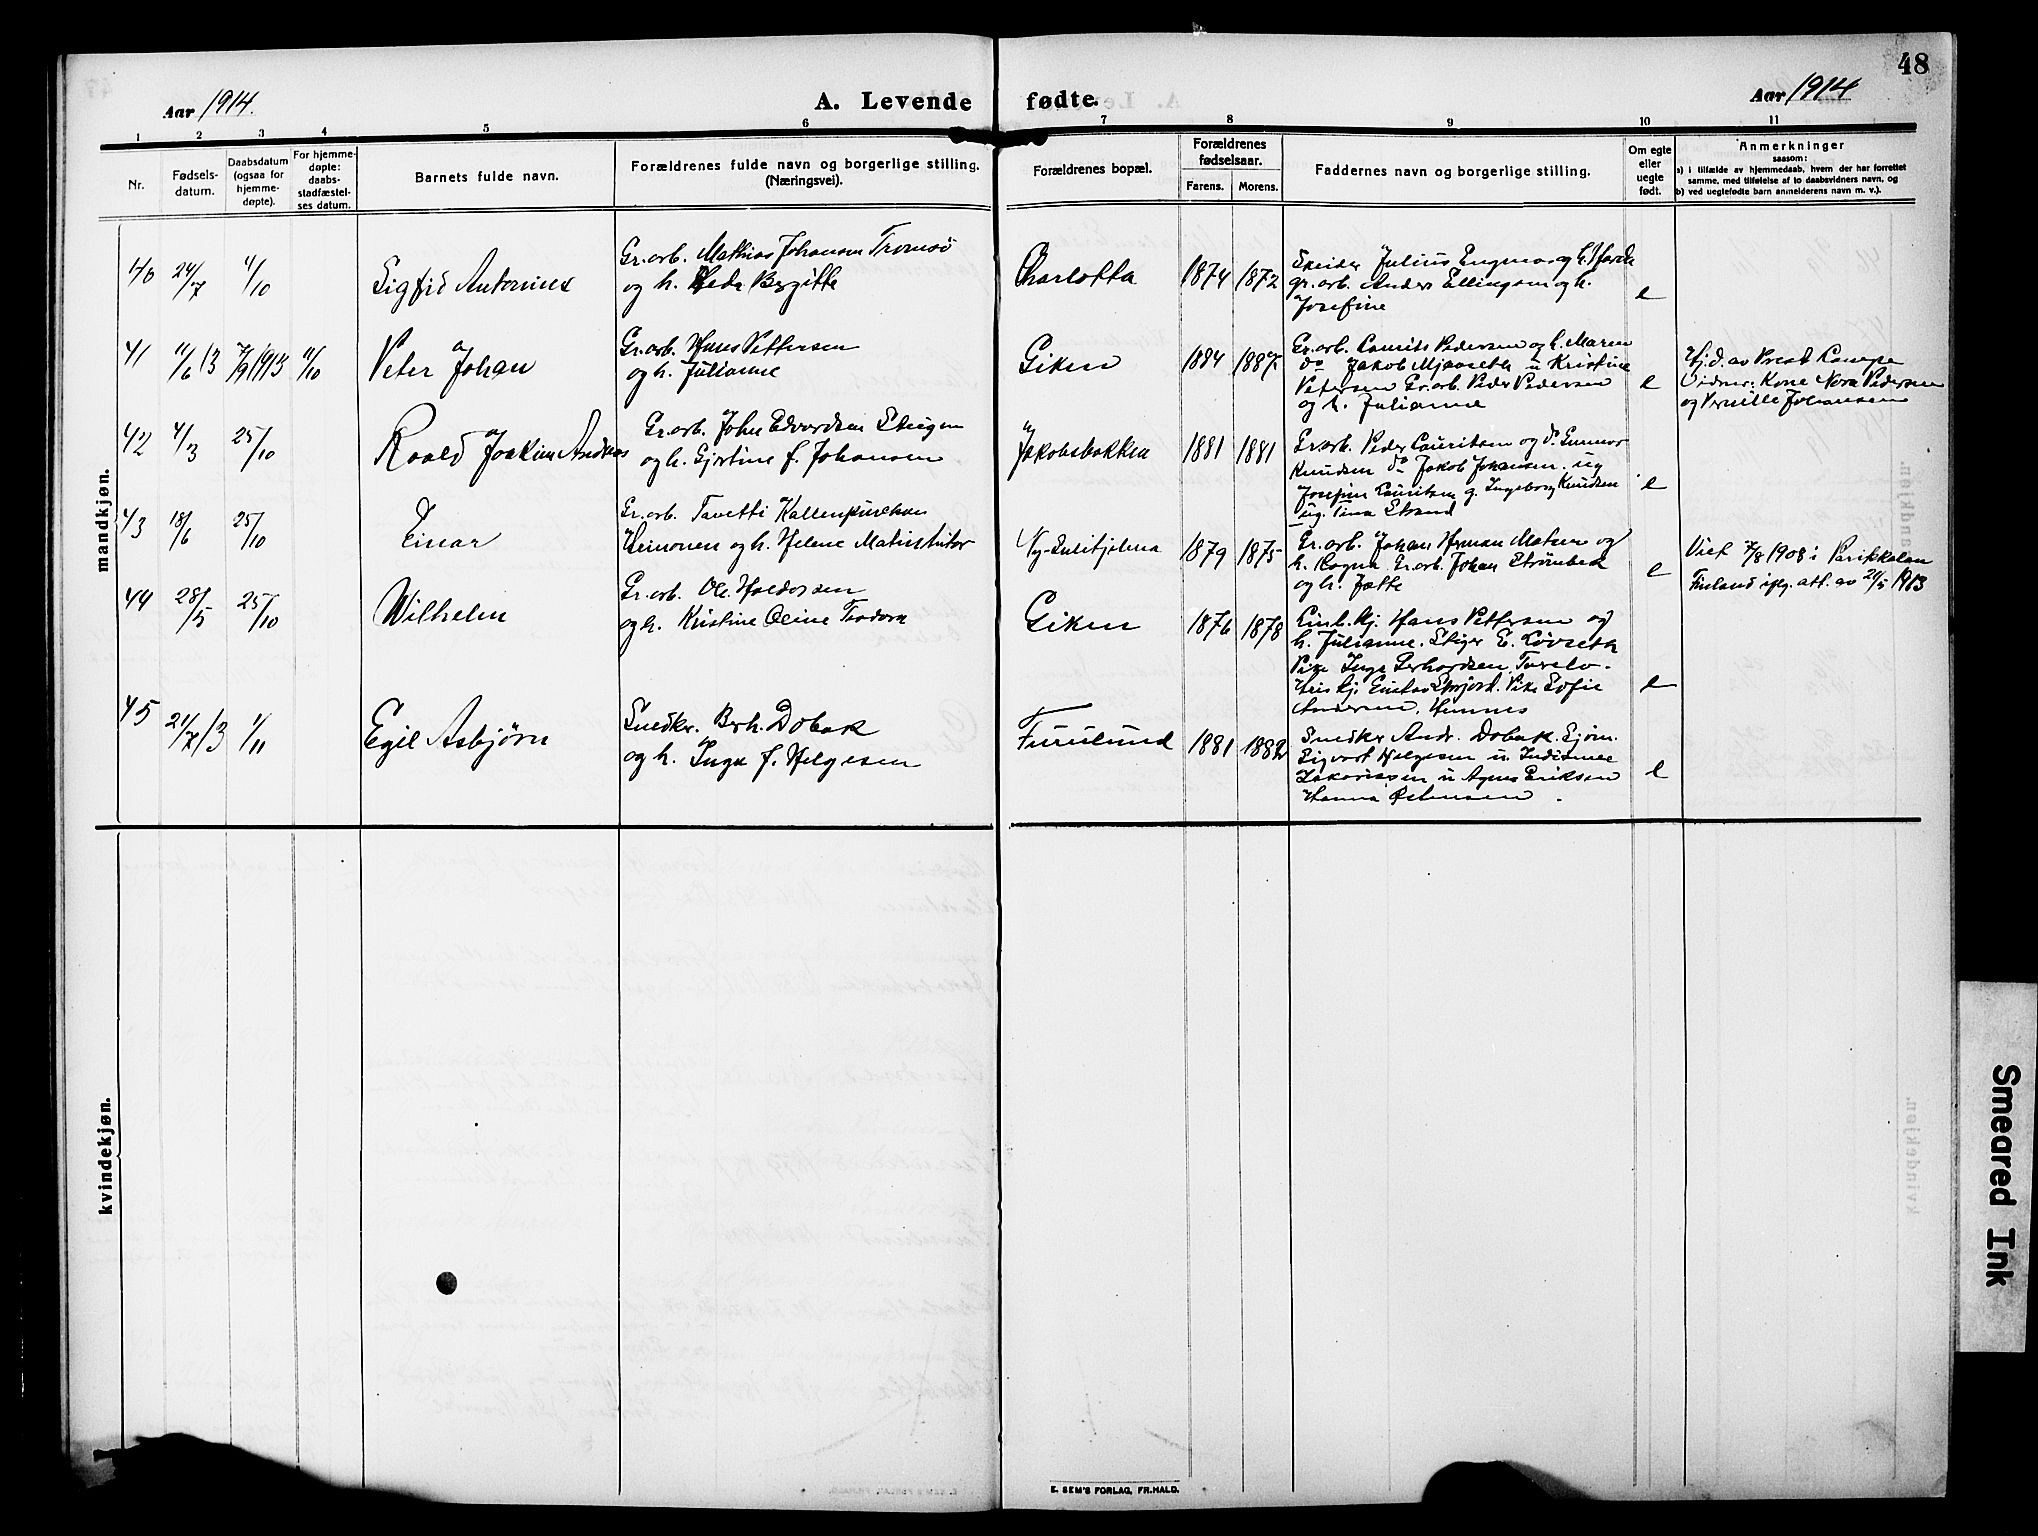 48
Aar 1914.
A. Levende fødte.
Aar 1914
1 2 3 4 5 6 7 8 9 10 11
Nr.
Fødsels-
datum.
Daabsdatum
(ogsaa for
hjemme-
døpte).
For hjemme-
døpte:
daabs-
stadfæstel-
ses datum.
Barnets fulde navn.
Forældrenes fulde navn og borgerlige stilling.
(Næringsvei).
Forældrenes bopæl.
Forældrenes
fødselsaar.
Farens. Morens.
Faddernes navn og borgerlige stilling.
Om egte
eller
uegte
født.
Anmerkninger
saasom:
a) i tilfælde av hjemmedaab, hvem der har forrettet
samme, med tilføielse af to daabsvidners navn, og
b) ved uegtefødte barn annelderens navn m. v.).
mandkjøn.
40 24/7 4/10
Sigfrid Antonius
Gr.arb. Mathias Johansen Tromsö
og h. Heda Bergitte
Charlotta
1874 1872
Julius Engmo og h.
gr. arb. Anders Ellingsen og h.
Josefine
e
41 11/6 13 7/9 1913 11/10
Peter Johan
Gr.arb. Hans Pettersen
og h. Julianne
Giken
1884 1887
Gr.arb. Laurits Pedersen og h. Maren
do Jakob Mjaaseth u Kristine
Petersen Gr.arb. Peder Pedersen
og h. Julianne
e
Hj.d. av Prest Lampe
Vidner: Kone Nora Pedersen
og Pernille Johansen
42 4/3 25/10
Roald Joakim Andreas
Gr.arb. John Edvardsen Steigen
og h. Gjertine f. Johansen
Jakobsbakken
1881 1881
Gr.arb. Peder Lauritsen og do Gunnar
Knudsen do Jakob Johansen. ug
Josefine Lauritsen g. Ingeborg Knudsen
ug. Tina Strand
e
43 18/6 25/10
Einar
Gr.arb. Tavetti
Heimonen og h. Helene
Ny-Sulitjelma
1879 1875
Gr.arb. Johan Herman Matsen og
h. Ragna Gr.arb. Johan Strømbeck
og h. Jette
e
Viet 7/8 1908 i Parikkalan
Finland iflg. att. av 21/5 1913
44 28/5 25/10
Wilhelm
Gr.arb. Ole Haldorsen
og h. Kristine Oline Teodora
Giken
1876 1878
Hans Pettersen og
h. Julianne. Stiger E. Løvseth
Pike Inga Gerhardsen,
Pike Sofie
Andersen, Hemnes
e
45 21/7 13 1/11
Egil Asbjørn
Snedkr. Berh. Dobak
og h. Inga f. Helgesen
Furulund
1881 1882
Snedker Andr. Dobak.
Sigvart Helgesen u.
Zakariassen u Agnes Eriksen
Hanna Østensen.
e
kvindekjøn.
E. SEM'S FORLAG, FR.HALD.
Smeared Ink